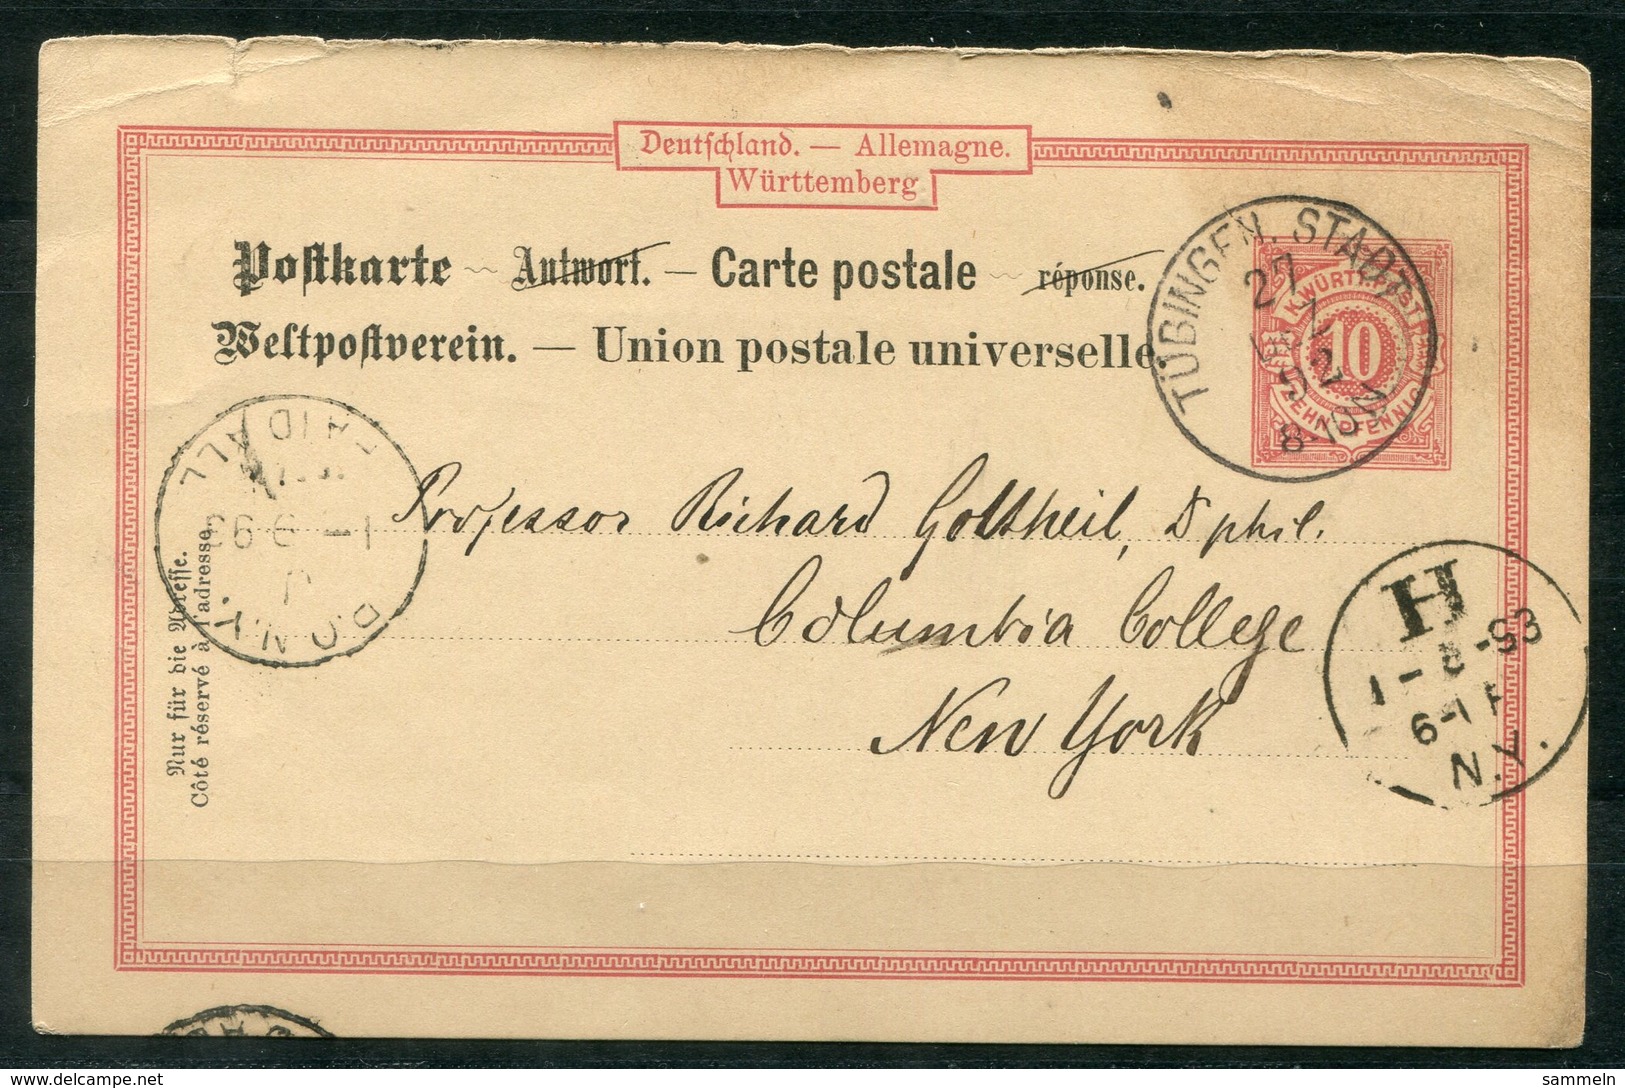 Deutschland. — Allemagne.
Württemberg
Postkarte ~ Antwort. — Carte postale ~ réponse.
Weltpostverein. — Union postale universelle.
TÜBINGEN. STADT
27
DEZ
92
8-10N
K.WÜRTT.POST
10
ZEHN PFENNIG
PAID ALL
1-6-93
N.Y.P.O.D.
Professor Richard Gottheil, D phil.
Columbia College
New York
H
1-6-93
6-1
N.Y.
Nur für die Adresse.
Côté réservé à l'adresse.
sammeln